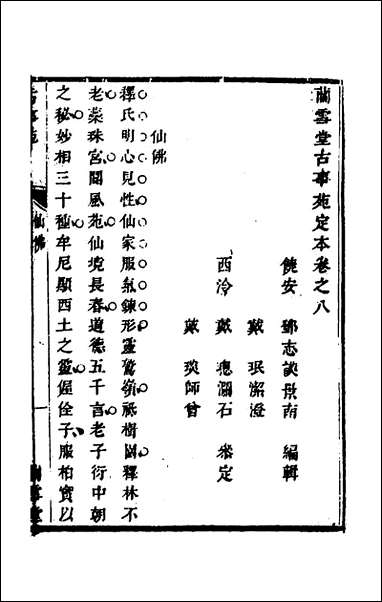 蘭雪堂古事苑定本卷之八
饒安 鄧志謨景南 編輯
戴 珉潔澄
西泠 戴 璁潤石 叅定
戴 璵師曾
仙佛
釋氏明心見性仙家服氣鍊形靈鷲嶺祇樹園釋林不
老蘂珠宮閬風苑仙境長春道德五千言老子衍中朝
之秘妙相三十種牟尼顯西土之靈偓佺子服柏實以
仙佛
一